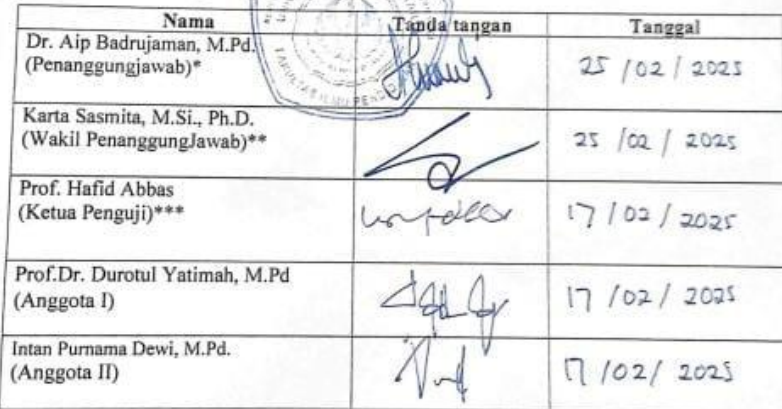 Nama Tanda tangan Tanggal
Dr. Aip Badrujaman, M.Pd.
(Penanggungjawab)* 25 / 02 / 2025
Karta Sasmita, M.Si., Ph.D.
(Wakil PenanggungJawab)** 25 / 02 / 2025
Prof. Hafid Abbas
(Ketua Penguji)*** 17 / 02 / 2025
Prof.Dr. Durotul Yatimah, M.Pd
(Anggota I) 17 / 02 / 2025
Intan Purnama Dewi, M.Pd.
(Anggota II) 17 / 02 / 2025
FAKULTAS ILMU